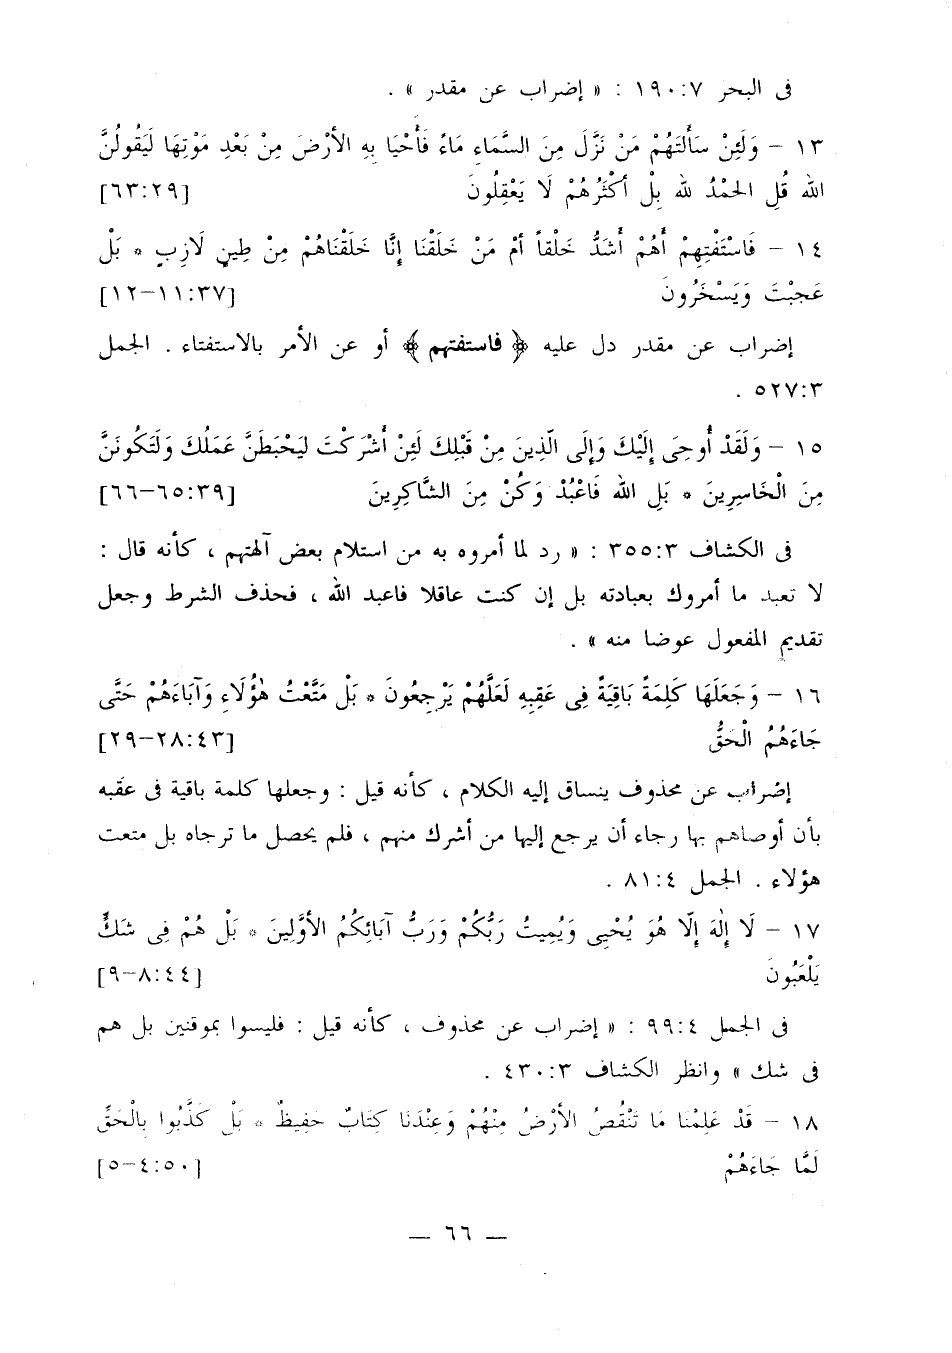 فى البحر ١٩٠:٧ : « إضراب عن مقدر » .
١٣ – وَلَئِنْ سَأَلْتَهُمْ مَنْ نَزَّلَ مِنَ السَّمَاءِ مَاءً فَأَحْيَا بِهِ الأَرْضَ مِنْ بَعْدِ مَوْتِهَا لَيَقُولُنَّ
اللهُ قُلِ الحَمْدُ لله بَلْ أَكْثَرُهُمْ لَا يَعْقِلُونَ [٦٣:٢٩]
١٤ – فَاسْتَفْتِهِمْ أَهُمْ أَشَدُّ خَلْقاً أَمْ مَنْ خَلَقْنَا إِنَّا خَلَقْنَاهُمْ مِنْ طِينٍ لَازِبٍ * بَلْ
عَجِبْتَ وَيَسْخَرُونَ [١١:٣٧–١٢]
إضراب عن مقدر دل عليه ﴿ فاستفتهم ﴾ أو عن الأمر بالاستفتاء . الجمل
٥٢٧:٣ .
١٥ – وَلَقَدْ أُوحِىَ إِلَيْكَ وَإِلَى الَّذِينَ مِنْ قَبْلِكَ لَئِنْ أَشْرَكْتَ لَيَحْبَطَنَّ عَمَلُكَ وَلَتَكُونَنَّ
مِنَ الْخَاسِرِينَ * بَلِ اللهَ فَاعْبُدْ وَكُنْ مِنَ الشَّاكِرِينَ [٦٥:٣٩–٦٦]
فى الكشاف ٣٥٥:٣ : « رد لما أمروه به من استلام بعض آلهتهم ، كأنه قال :
لا تعبد ما أمروك بعبادته بل إن كنت عاقلا فاعبد الله ، فحذف الشرط وجعل
تقديم المفعول عوضا منه » .
١٦ – وَجَعَلَهَا كَلِمَةً بَاقِيَةً فِى عَقِبِهِ لَعَلَّهُمْ يَرْجِعُونَ * بَلْ مَتَّعْتُ هٰؤُلَاءِ وَآبَاءَهُمْ حَتَّى
جَاءَهُمُ الْحَقُّ [٢٨:٤٣–٢٩]
إضراب عن محذوف ينساق إليه الكلام ، كأنه قيل : وجعلها كلمة باقية فى عقبه
بأن أوصاهم بها رجاء أن يرجع إليها من أشرك منهم ، فلم يحصل ما ترجاه بل متعت
هؤلاء . الجمل ٨١:٤ .
١٧ – لَا إِلٰهَ إِلَّا هُوَ يُحْيِى وَيُمِيتُ رَبُّكُمْ وَرَبُّ آبَائِكُمُ الأَوَّلِينَ * بَلْ هُمْ فِى شَكٍّ
يَلْعَبُونَ [٨:٤٤–٩]
فى الجمل ٩٩:٤ : « إضراب عن محذوف ، كأنه قيل : فليسوا بموقنين بل هم
فى شك » وانظر الكشاف ٤٣٠:٣ .
١٨ – قَدْ عَلِمْنَا مَا تَنْقُصُ الأَرْضُ مِنْهُمْ وَعِنْدَنَا كِتَابٌ حَفِيظٌ * بَلْ كَذَّبُوا بِالْحَقِّ
لَمَّا جَاءَهُمْ [٤:٥٠–٥]
— ٦٦ —